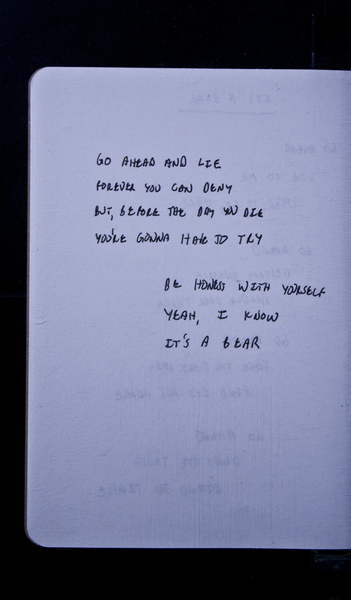 GO AHEAD AND LIE
FOREVER YOU CAN DENY
BUT, BEFORE THE DAY YOU DIE
YOU'RE GONNA HAVE TO TRY
BE HONEST WITH YOURSELF
YEAH, I KNOW
IT'S A BEAR